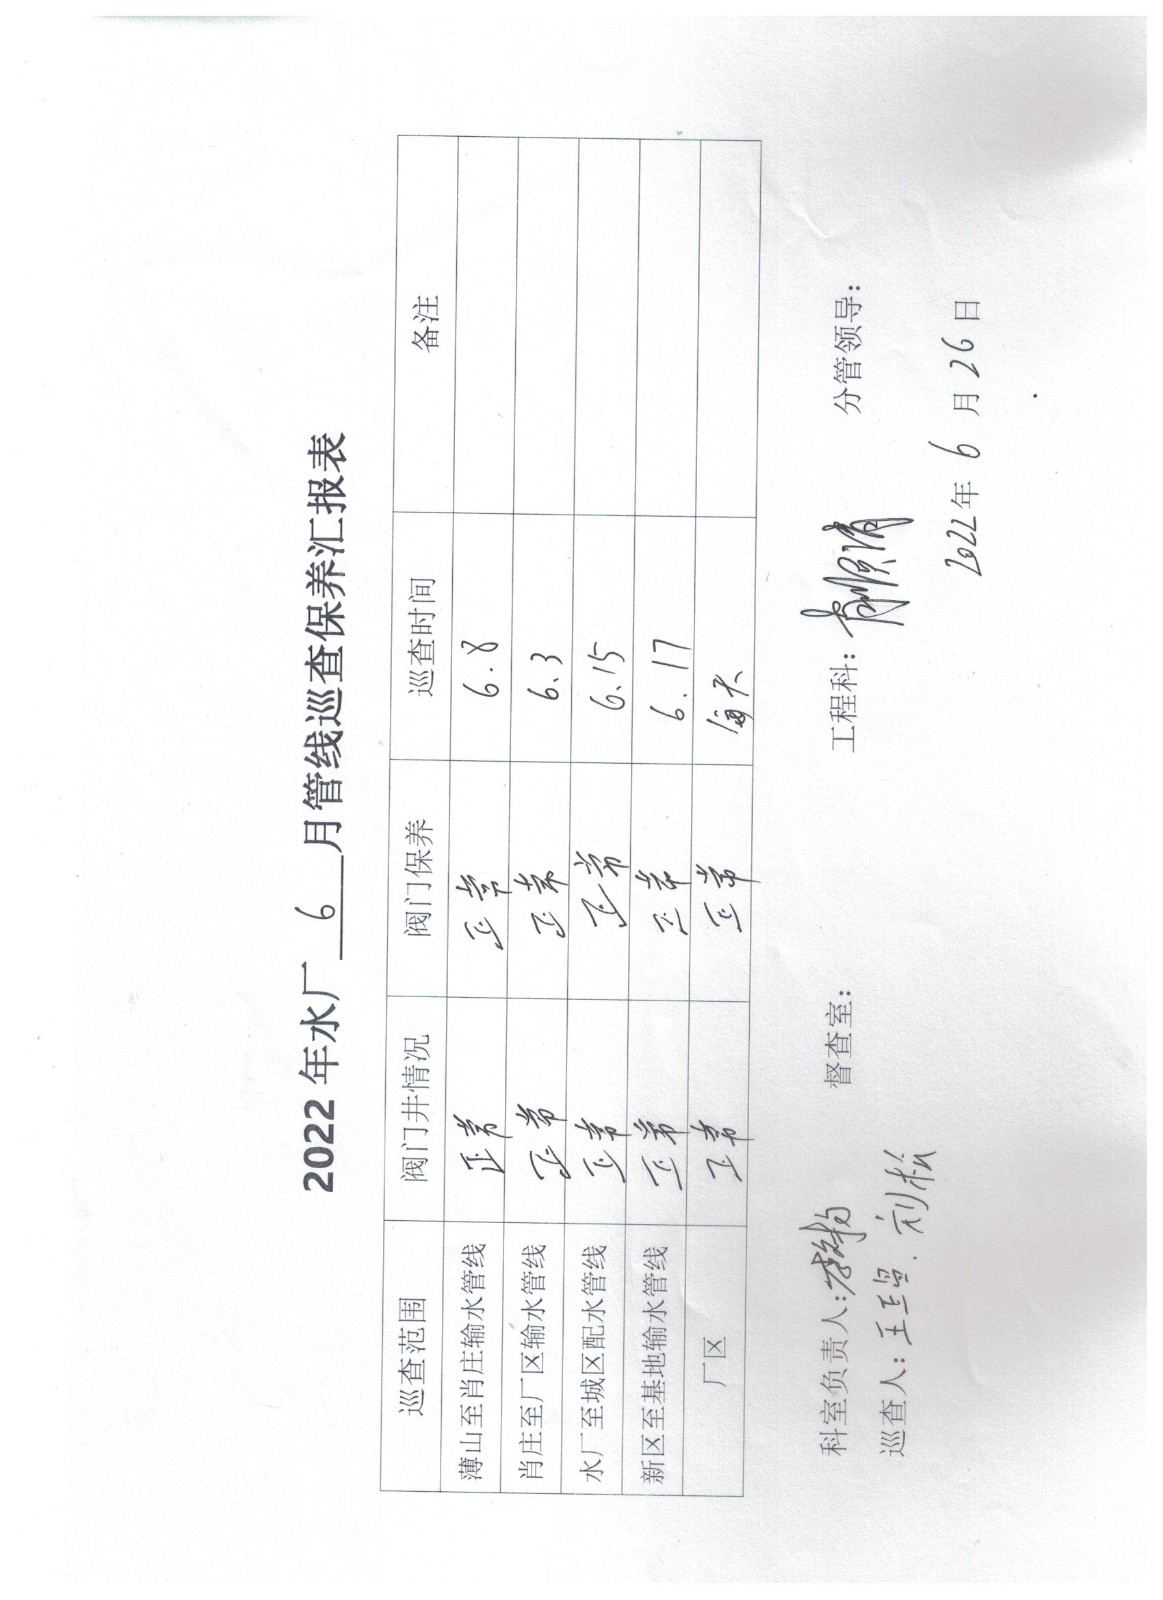 2022 年水厂 6 月管线巡查保养汇报表
巡查范围 阀门井情况 阀门保养 巡查时间 备注
薄山至肖庄输水管线 正常 正常 6.8
肖庄至厂区输水管线 正常 正常 6.3
水厂至城区配水管线 正常 正常 6.15
新区至基地输水管线 正常 正常 6.17
厂区 正常 正常 每天
科室负责人: 督查室: 工程科: 分管领导:
巡查人: 刘松
2022年 6 月 26 日